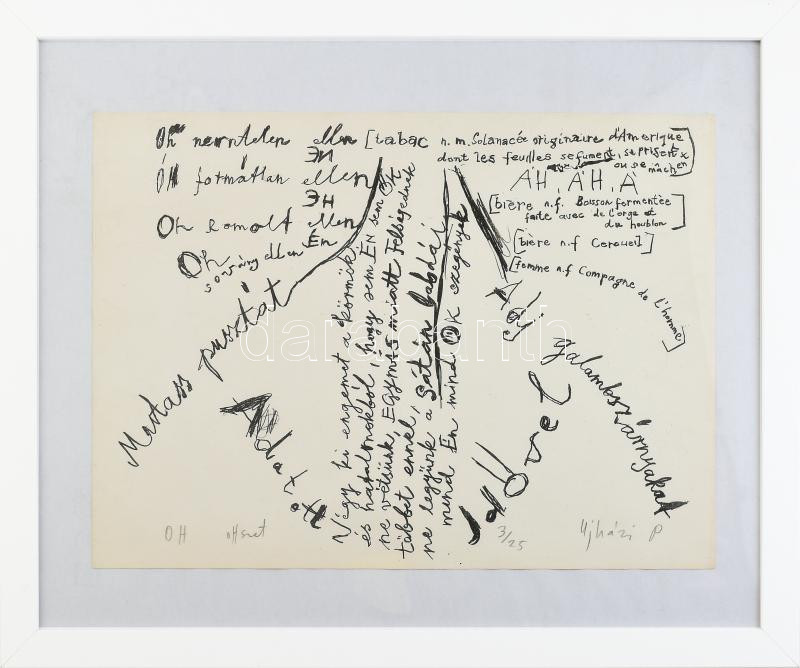 Óh nemtelen ellen
ÉN
ÓH formátlan ellen
ÉN
Oh romolt ellen
Én
Oh
sovány ellen
[tabac n. m. Solanacée originaire d'Amerique
dont les feuilles se fument, se prisent
ou se mâchent]
ÁH, ÁH, Á
[bière n.f. Boisson fermentée
faite avec de l'orge et
du houblon]
[bière n.f Cercueil]
[femme n.f Compagne de l'homme]
Mutass pusztát
Adj
galambszárnyakat
Végy ki engemet a körmök
és hatalmokból, hogy sem ÉN sem ŐK
ne vétsünk, EGYMÁS miatt Felségednek
többet ennél,
ne legyünk a sátán labdái
mind Én mind ŐK szegények
darabanth
OH
3/25
Ujházi P